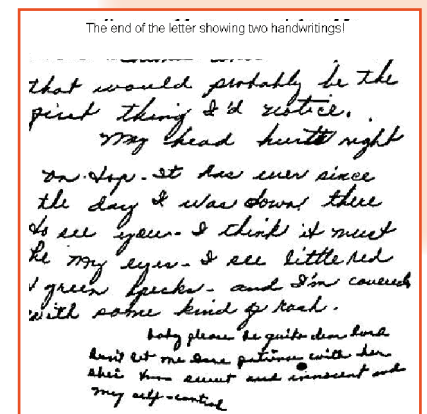 The end of the letter showing two handwritings!
that would probably be the
first thing I'd notice.
My head hurts right
on top - It has ever since
the day I was down there
to see you - I think it must
be my eyes - I see little red
& green specks - and I'm covered
with some kind of rash.
baby please be quite dear lord
don't let me lose patience with her
she's sweet and innocent and
my self-control